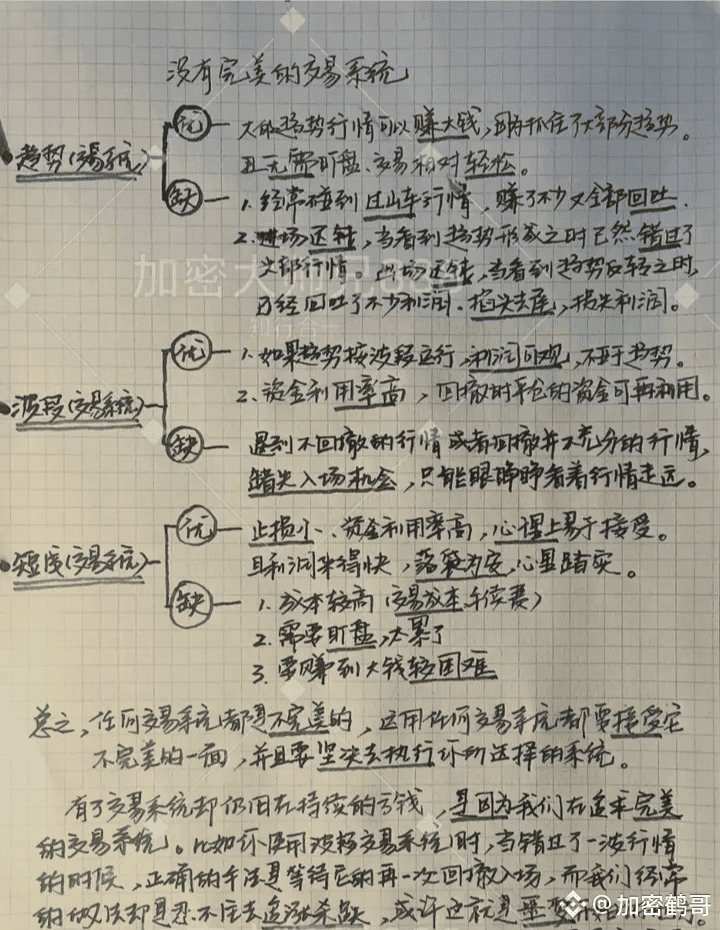 没有完美的交易系统
趋势(交易系统)
优
大的趋势行情可以赚大钱,因为抓住了大部分趋势。
且无需盯盘、交易相对轻松。
缺
1. 经常碰到过山车行情,赚了不少又全部回吐.
2. 进场迟钝,当看到趋势形成之时已然错过了
头部行情。出场迟钝,当看到趋势反转之时,
已经回吐了不少利润、掐头去尾,损失利润。
加密大师兄88
知行合一
波段(交易系统)
优
1. 如果趋势按波段运行,利润可观,不亚于趋势。
2、资金利用率高,回撤时平仓的资金可再利用。
缺
遇到不回撤的行情或者回撤并不充分的行情,
错失入场机会,只能眼睁睁看着行情走远。
短线(交易系统)
优
止损小、资金利用率高,心理上易于接受。
且利润来得快,落袋为安,心里踏实。
缺
1. 成本较高(交易成本,手续费)
2. 需要盯盘,太累了
3. 要赚到大钱较困难
总之,任何交易系统都是不完美的,运用任何交易系统都要接受它
不完美的一面,并且要坚决去执行你所选择的系统。
有了交易系统却仍旧在持续的亏钱,是因为我们在追求完美
的交易系统。比如你使用波段交易系统时,当错过了一波行情
的时候,正确的手法是等待它的再一次回撤入场,而我们经常
的做法却是忍不住去追涨杀跌,或许这就是
@加密鹤哥